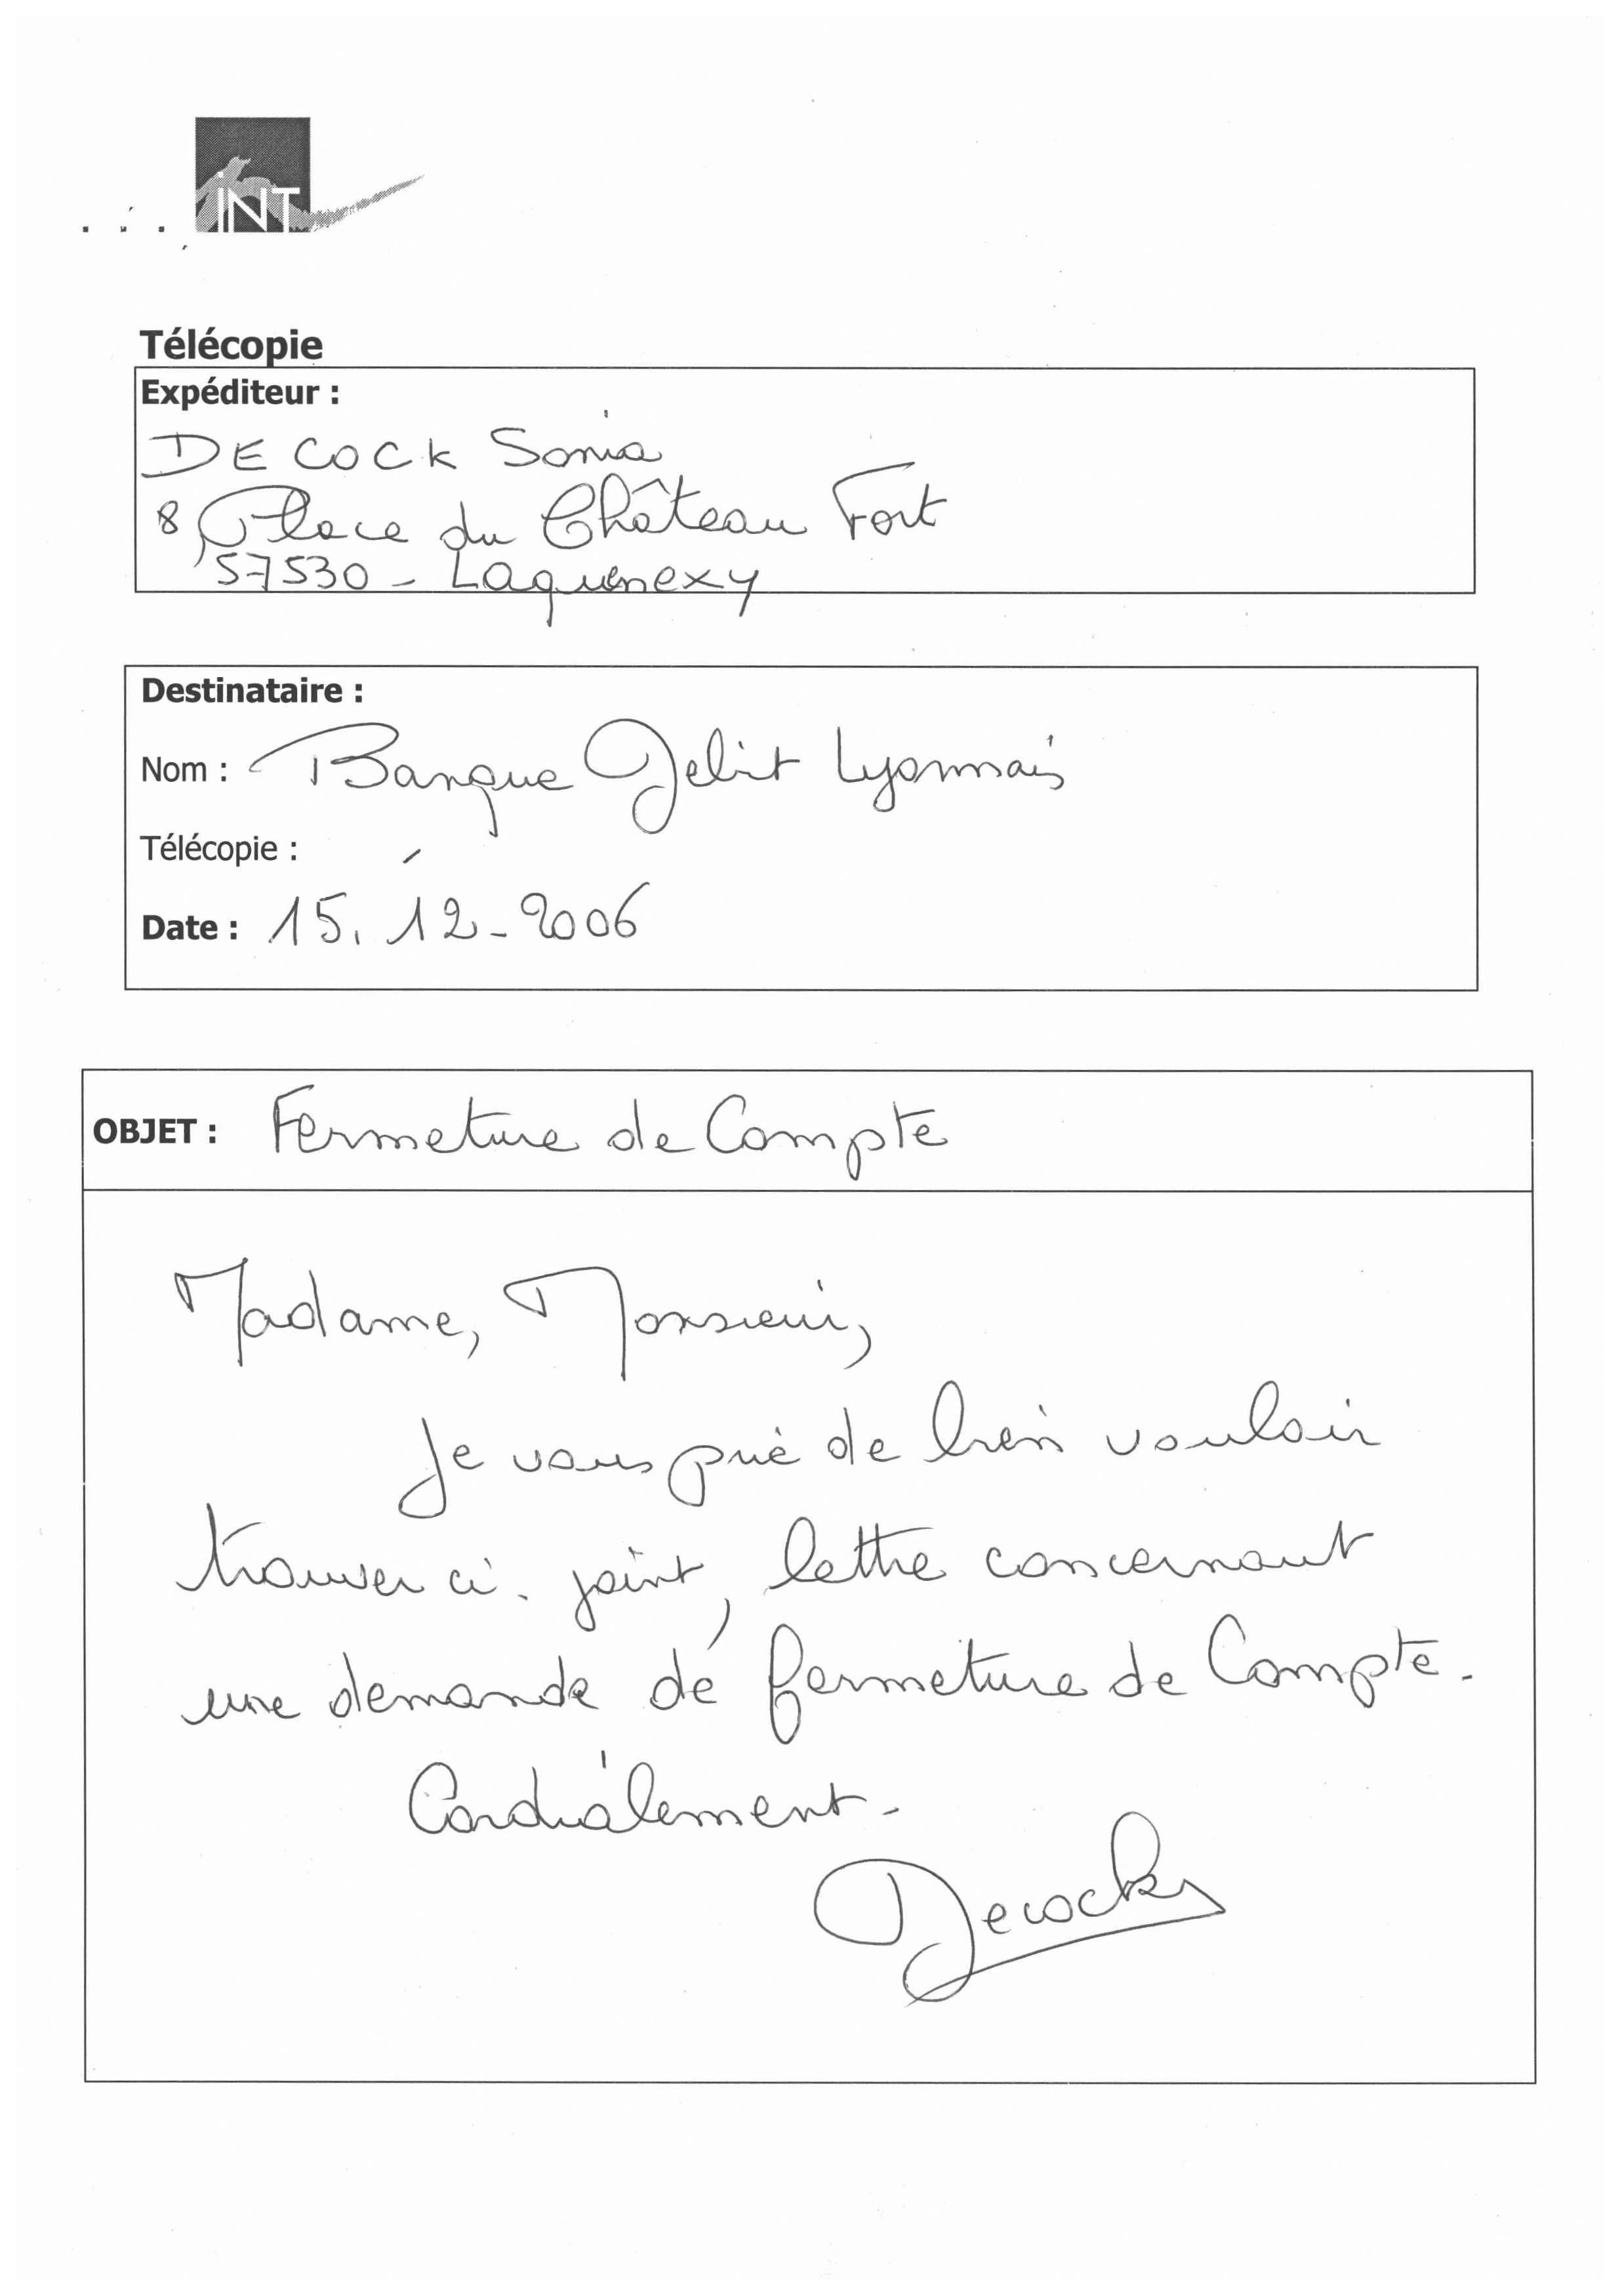 INT
Télécopie
Expéditeur :
DECOCK Sonia
8 Place du Château Fort
57530 - Laquenexy
Destinataire :
Nom : Banque Debit Lyonnais
Télécopie : /
Date : 15. 12 - 2006
OBJET : Fermeture de Compte
Madame, Monsieur,
Je vous prie de bien vouloir
trouver ci-joint, lettre concernant
une demande de fermeture de Compte.
Cordialement.
Decock